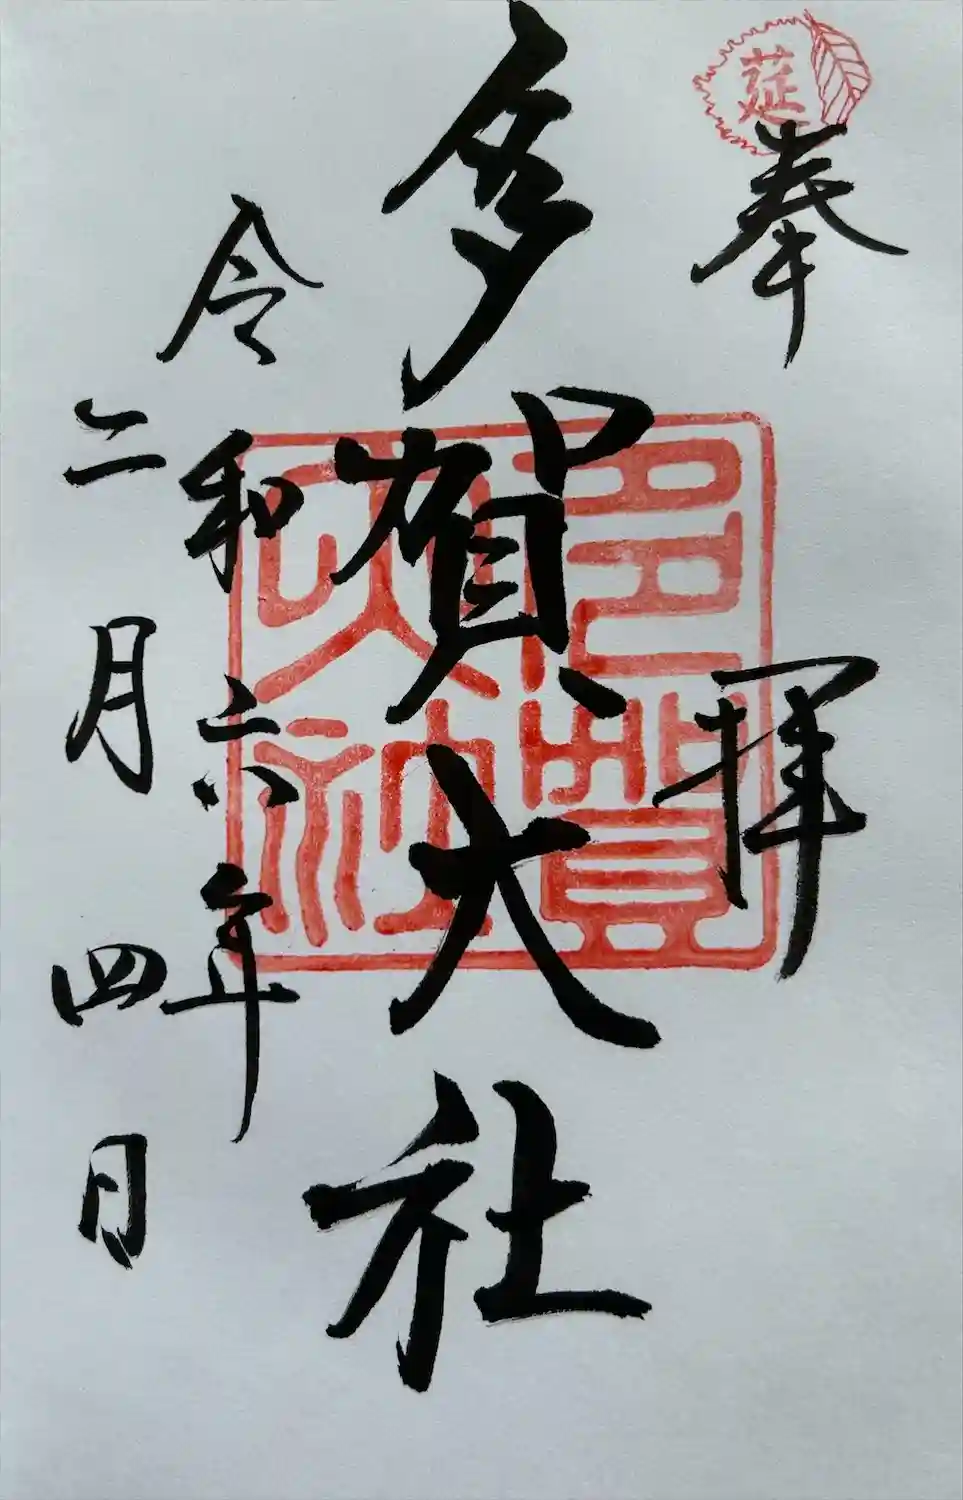 莚
奉拝
多賀大社
多賀大社
令和六年
二月四日